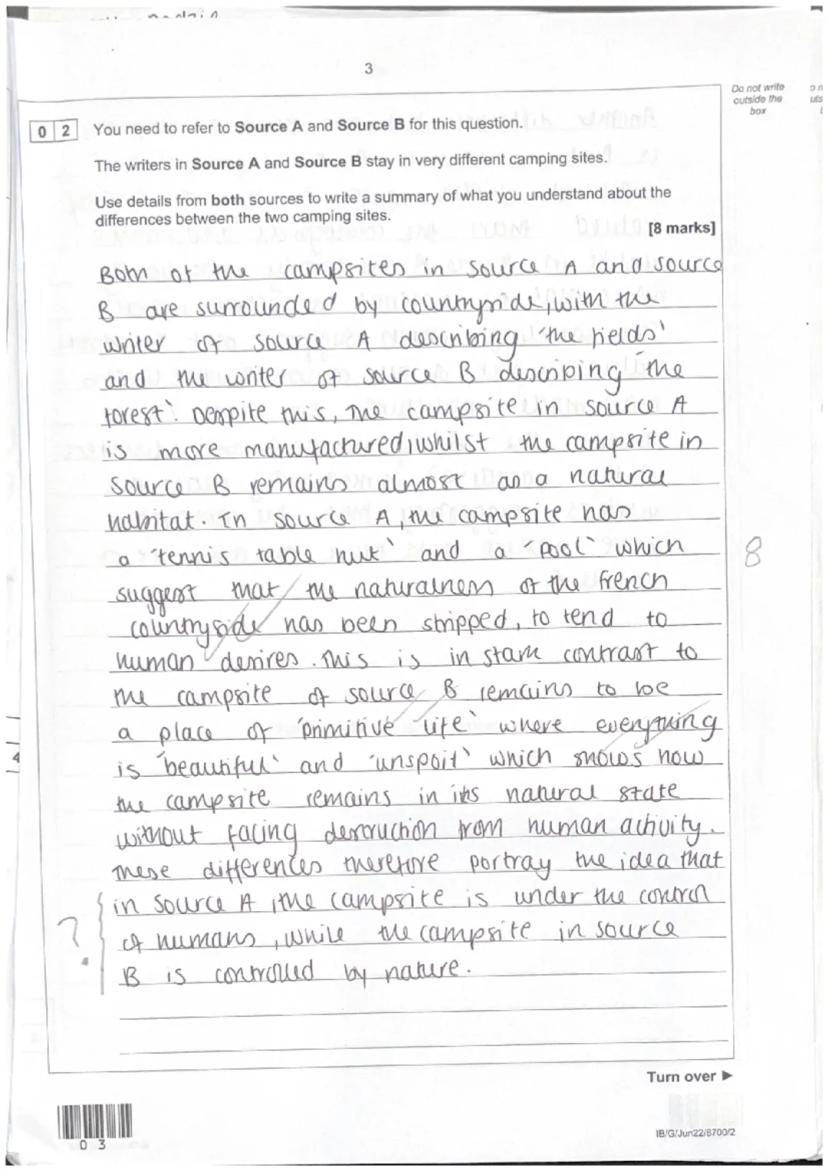 3
Do not write
outside the
box
0 2 You need to refer to Source A and Source B for this question.
The writers in Source A and Source B stay in very different camping sites.
Use details from both sources to write a summary of what you understand about the
differences between the two camping sites.
[8 marks]
Both of the campsites in source A and source
B are surrounded by countryside, with the
writer of source A describing 'the fields'
and the writer of source B describing 'the
forest'. Despite this, the campsite in source A
is more manufactured, whilst the campsite in
source B remains almost as a natural
habitat. In source A, the campsite has
a 'tennis table hut' and a 'pool' which
suggest that the naturalness of the french
countryside has been stripped, to tend to
human desires. This is in stark contrast to
the campsite of source B remains to be
a place of 'primitive life' where everything
is 'beautiful' and 'unspoilt' which shows how
the campsite remains in its natural state
without facing destruction from human activity.
These differences therefore portray the idea that
in source A, the campsite is under the control
of humans, while the campsite in source
B is controlled by nature.
8
?
4
Turn over ►
0 3
IB/G/Jun22/8700/2